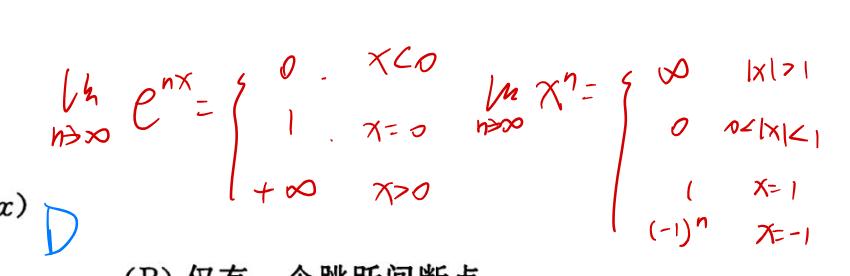 lim n→∞ e^{nx} = { 0 . x<0
1 . x=0
+∞ x>0
lim n→∞ x^n = { ∞ |x|>1
0 0<|x|<1
1 x=1
(-1)^n x=-1
x)
D
(B) 仅有一个跳跃间断点